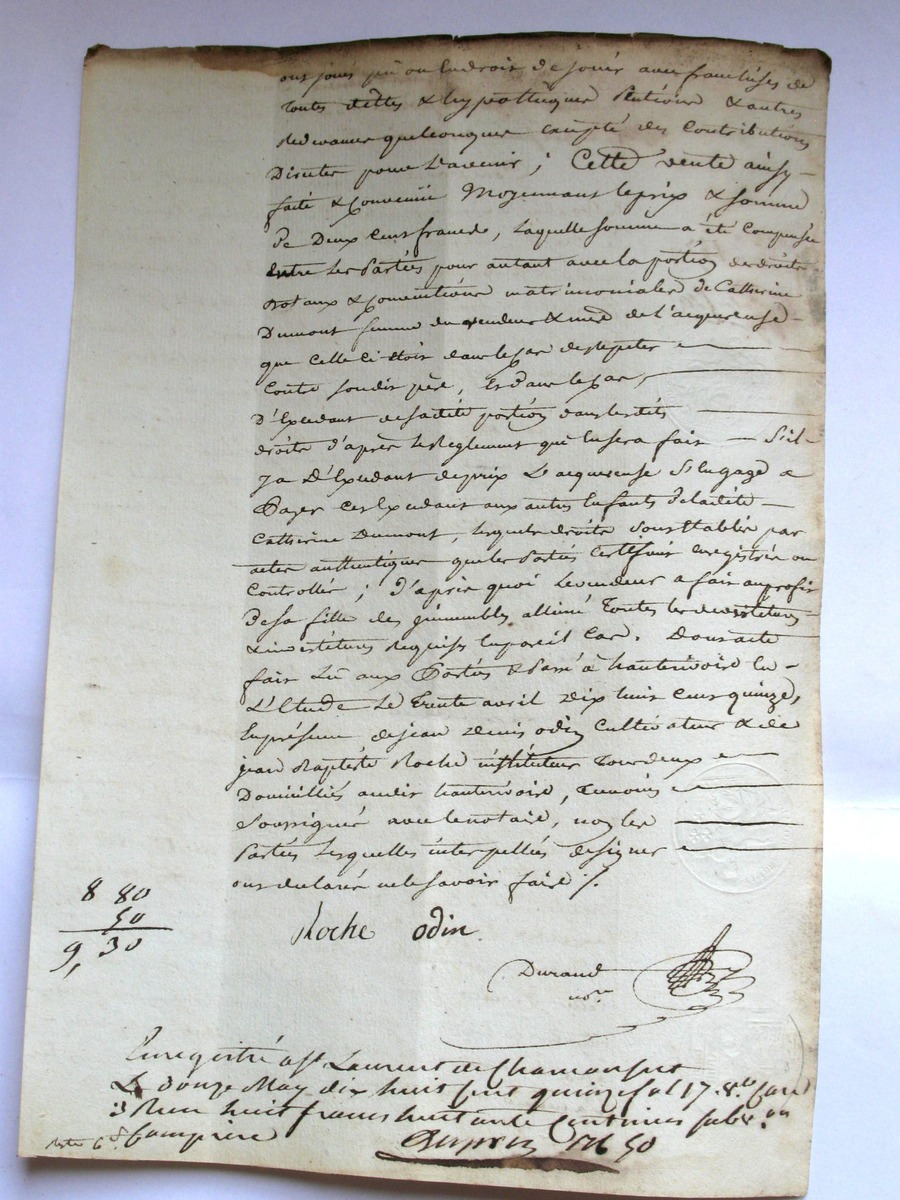 ont jouis pû ou eu droit de jouir avec franchises de
toutes dettes & hypotheques Rentieres & autres
Redevances quelconques excepté des Contributions
Directes pour l'avenir; Cette vente ainsy
faite & convenüe Moyennant le prix & somme
De Deux Cent francds, laquelle somme a été Compensée
entre les Parties pour autant avec la portion des droits
dotaux & Conventions matrimoniales de Catherine
Dumont femme du vendeur & mere de l'acquereuse
que celle ci étoit dans le Cas de repeter
Contre son dit père, Et dans le Cas
D'Excedant de sa dité portion dans les dits
droits d'après le Reglement qui en sera fait — S'il
y a D'Excedant de prix L'acquereuse S'engage a
Payer cet Excedant aux autres Enfants de la dité
Catherine Dumont, lesquels droits sont Etablis par
actes authentiques que les Parties Certifient enregistrés ou
Controllés; D'après quoi Le vendeur a fait au profit
De sa fille des jmmeubles alliéné toutes les devestitures
& investitures Requises en pareil Cas. Dont acte
fait Lû aux Parties & Passé à hauterivoire en
L'Etude Le trente avril dix huit Cent quinze,
En présence de jean denis odin Cultivateur & de
jean Baptiste Roche instituteur tous deux
Domiciliés au dit hauterivoire, temoins
soussignés avec le notaire, non les
Parties lesquelles interpellées de signer
ont declaré ne le savoir faire ./.
8 80
50
9, 30
Roche odin
Durand
nore
Enregistré a st Laurent de Chamousset
Le douze May dix huit cent quinze fol 17
Reçu huit francs huitante Centimes
50